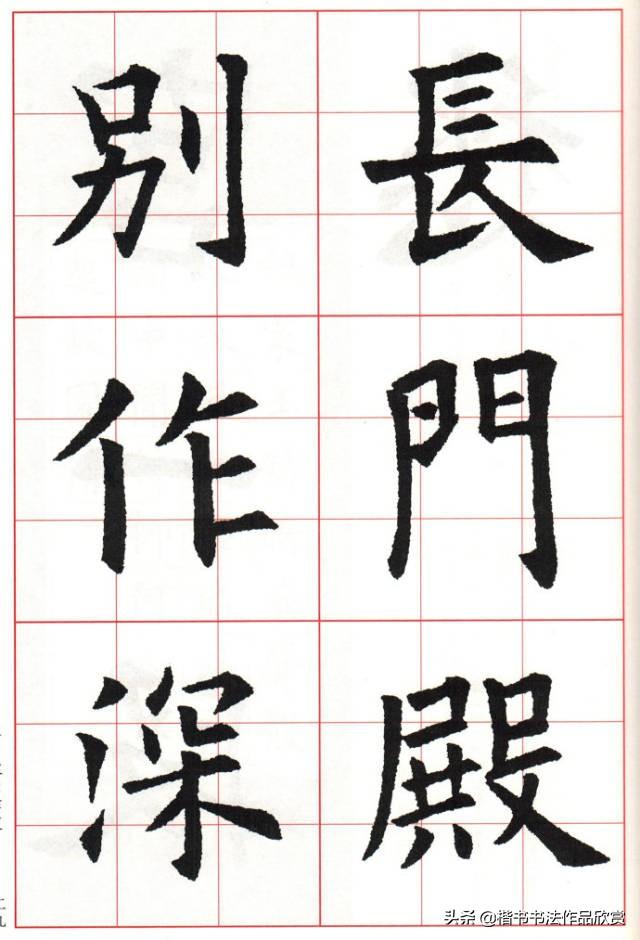 長門殿
别作深
头条 @楷书书法作品欣赏